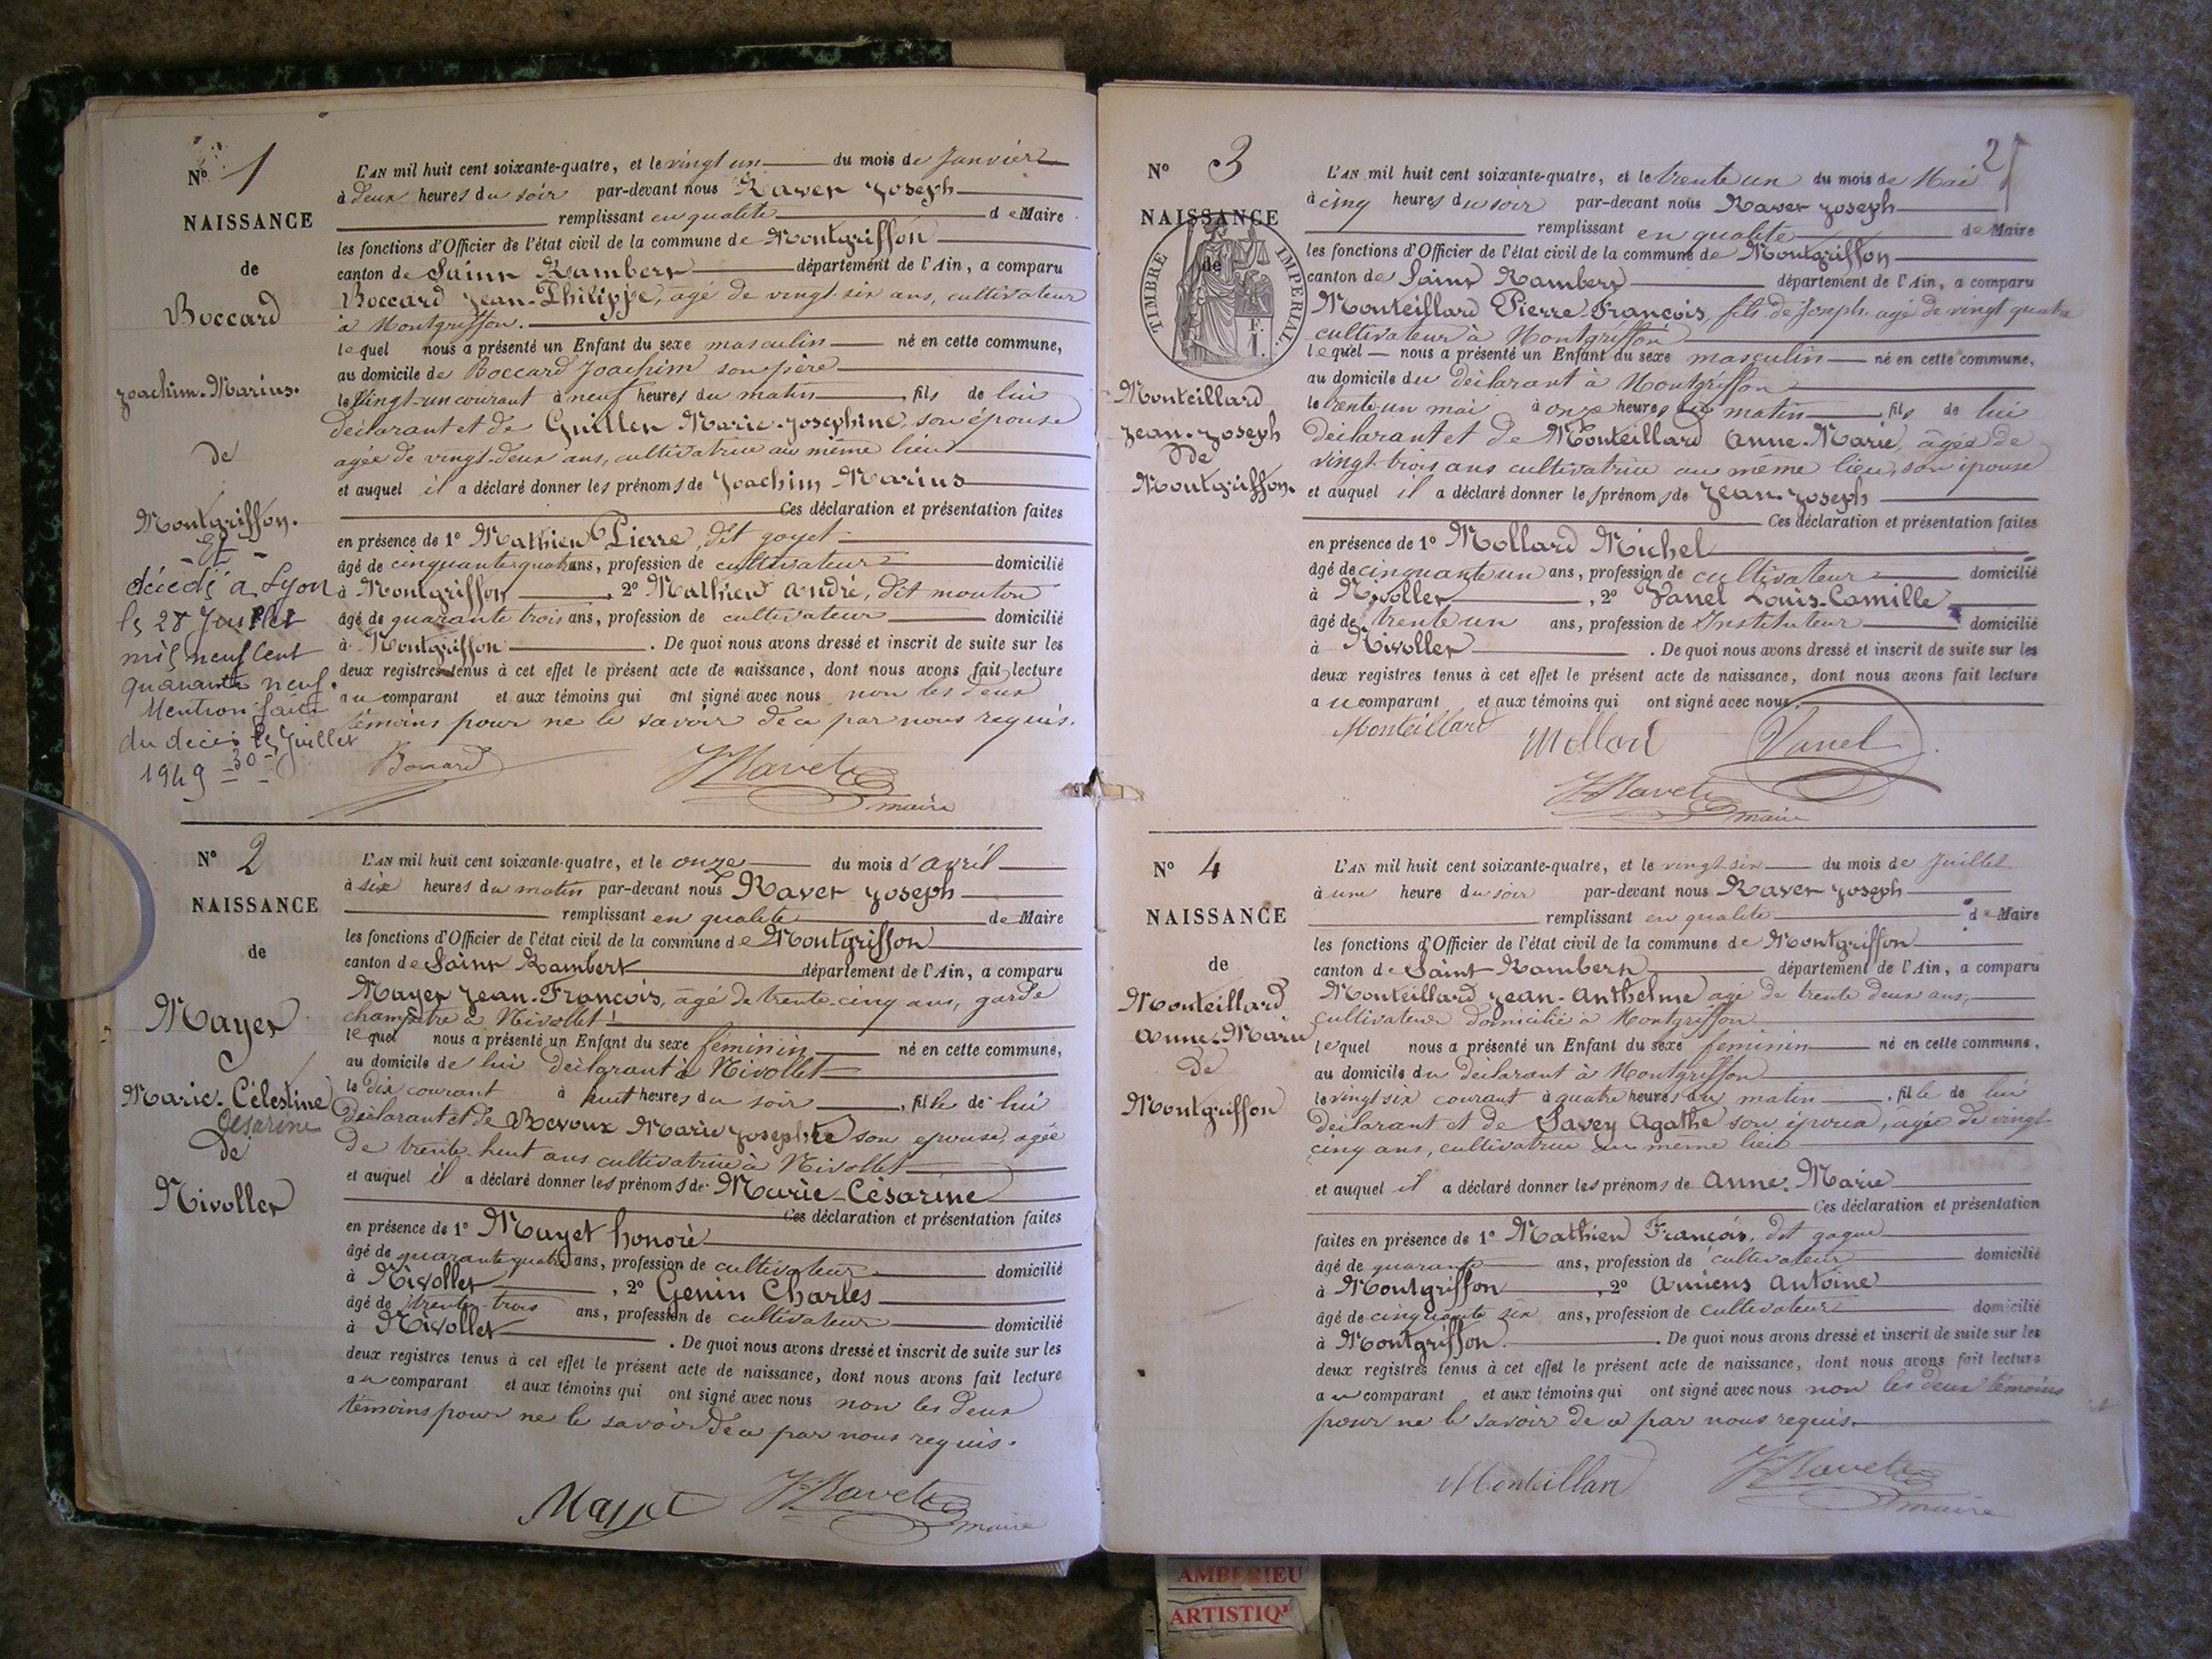 Nº 1
NAISSANCE
de
Boccard
Joachim-Marius.
de
Montgriffon.
- Et -
décédé à Lyon
le 28 Juillet
mil neuf cent
quarante neuf.
Mention faite
du décès le Juillet
30
1949
L'AN mil huit cent soixante-quatre, et le vingt un du mois de Janvier
à deux heures du soir par-devant nous Ravet Joseph
remplissant en qualité de Maire
les fonctions d'Officier de l'état civil de la commune de Montgriffon
canton de Saint Rambert département de l'Ain, a comparu
Boccard Jean-Philippe, âgé de vingt-six ans, cultivateur
à Montgriffon.
lequel nous a présenté un Enfant du sexe masculin né en cette commune,
au domicile de Boccard Joachim son père
le Vingt-un courant à neuf heures du matin, fils de lui
déclarant et de Guillet Marie-Josephine, son épouse
agée de vingt-deux ans, cultivatrice au même lieu
et auquel il a déclaré donner les prénoms de Joachim Marius
Ces déclaration et présentation faites
en présence de 1º Mathieu Pierre, dit goyet
âgé de cinquante quatre ans, profession de cultivateur domicilié
à Montgriffon, 2º Mathieu André, dit mouton
âgé de quarante trois ans, profession de cultivateur domicilié
à Montgriffon. De quoi nous avons dressé et inscrit de suite sur les
deux registres tenus à cet effet le présent acte de naissance, dont nous avons fait lecture
au comparant et aux témoins qui ont signé avec nous non les deux
témoins pour ne le savoir de ce par nous requis.
Boccard JRavet maire
Nº 2
NAISSANCE
de
Mayet
Marie-Célestine
Césarine
de
Nivollet
L'AN mil huit cent soixante-quatre, et le onze du mois d'avril
à six heures du matin par-devant nous Ravet Joseph
remplissant en qualité de Maire
les fonctions d'Officier de l'état civil de la commune de Montgriffon
canton de Saint Rambert département de l'Ain, a comparu
Mayet Jean-François, âgé de trente-cinq ans, garde
champêtre à Nivollet
lequel nous a présenté un Enfant du sexe feminin né en cette commune,
au domicile de lui déclarant à Nivollet
le dix courant à huit heures du soir, fille de lui
déclarant et de Bevoux Marie Josephte son epouse, agée
de trente-huit ans cultivatrice à Nivollet
et auquel il a déclaré donner les prénoms de Marie-Césarine
Ces déclaration et présentation faites
en présence de 1º Mayet honoré
âgé de quarante quatre ans, profession de cultivateur domicilié
à Nivollet, 2º Genin Charles
âgé de trente-trois ans, profession de cultivateur domicilié
à Nivollet. De quoi nous avons dressé et inscrit de suite sur les
deux registres tenus à cet effet le présent acte de naissance, dont nous avons fait lecture
au comparant et aux témoins qui ont signé avec nous non les deux
témoins pour ne le savoir de ce par nous requis.
Mayet JRavet maire
Nº 3
NAISSANCE
de
TIMBRE IMPERIAL
Monteillard
Jean-Joseph
de
Montgriffon.
L'AN mil huit cent soixante-quatre, et le trente un du mois de Mai
à cinq heures du soir par-devant nous Ravet Joseph
remplissant en qualité de Maire
les fonctions d'Officier de l'état civil de la commune de Montgriffon
canton de Saint Rambert département de l'Ain, a comparu
Monteillard Pierre-François, fils de Joseph agé de vingt quatre
cultivateur à Montgriffon
lequel nous a présenté un Enfant du sexe masculin né en cette commune,
au domicile du déclarant à Montgriffon
le trente-un mai à onze heures du matin fils de lui
déclarant et de Monteillard Anne-Marie, âgée de
vingt trois ans cultivatrice au même lieu, son épouse
et auquel il a déclaré donner les prénoms de Jean-Joseph
Ces déclaration et présentation faites
en présence de 1º Mollard Michel
âgé de cinquante un ans, profession de cultivateur domicilié
à Nivollet, 2º Vanel Louis-Camille
âgé de trente un ans, profession de Instituteur domicilié
à Nivollet. De quoi nous avons dressé et inscrit de suite sur les
deux registres tenus à cet effet le présent acte de naissance, dont nous avons fait lecture
au comparant et aux témoins qui ont signé avec nous.
Monteillard Mollard Vanel
JRavet maire
Nº 4
NAISSANCE
de
Monteillard
Anne-Marie
de
Montgriffon
L'AN mil huit cent soixante-quatre, et le vingt six du mois de Juillet
à une heure du soir par-devant nous Ravet Joseph
remplissant en qualité de Maire
les fonctions d'Officier de l'état civil de la commune de Montgriffon
canton de Saint-Rambert département de l'Ain, a comparu
Monteillard Jean-Anthelme agé de trente deux ans,
cultivateur domicilié à Montgriffon
lequel nous a présenté un Enfant du sexe feminin né en cette commune,
au domicile du déclarant à Montgriffon
le vingt six courant à quatre heures du matin, fille de lui
déclarant et de Savey Agathe son épouse, âgée de vingt
cinq ans, cultivatrice au même lieu
et auquel il a déclaré donner les prénoms de Anne-Marie
Ces déclaration et présentation
faites en présence de 1º Mathieu François, dit gogue
âgé de quarante ans, profession de cultivateur domicilié
à Montgriffon, 2º Amiens Antoine
âgé de cinquante six ans, profession de cultivateur domicilié
à Montgriffon. De quoi nous avons dressé et inscrit de suite sur les
deux registres tenus à cet effet le présent acte de naissance, dont nous avons fait lecture
au comparant et aux témoins qui ont signé avec nous non les deux témoins
pour ne le savoir de ce par nous requis.
Monteillard JRavet maire
AMBERIEU
ARTISTIQ